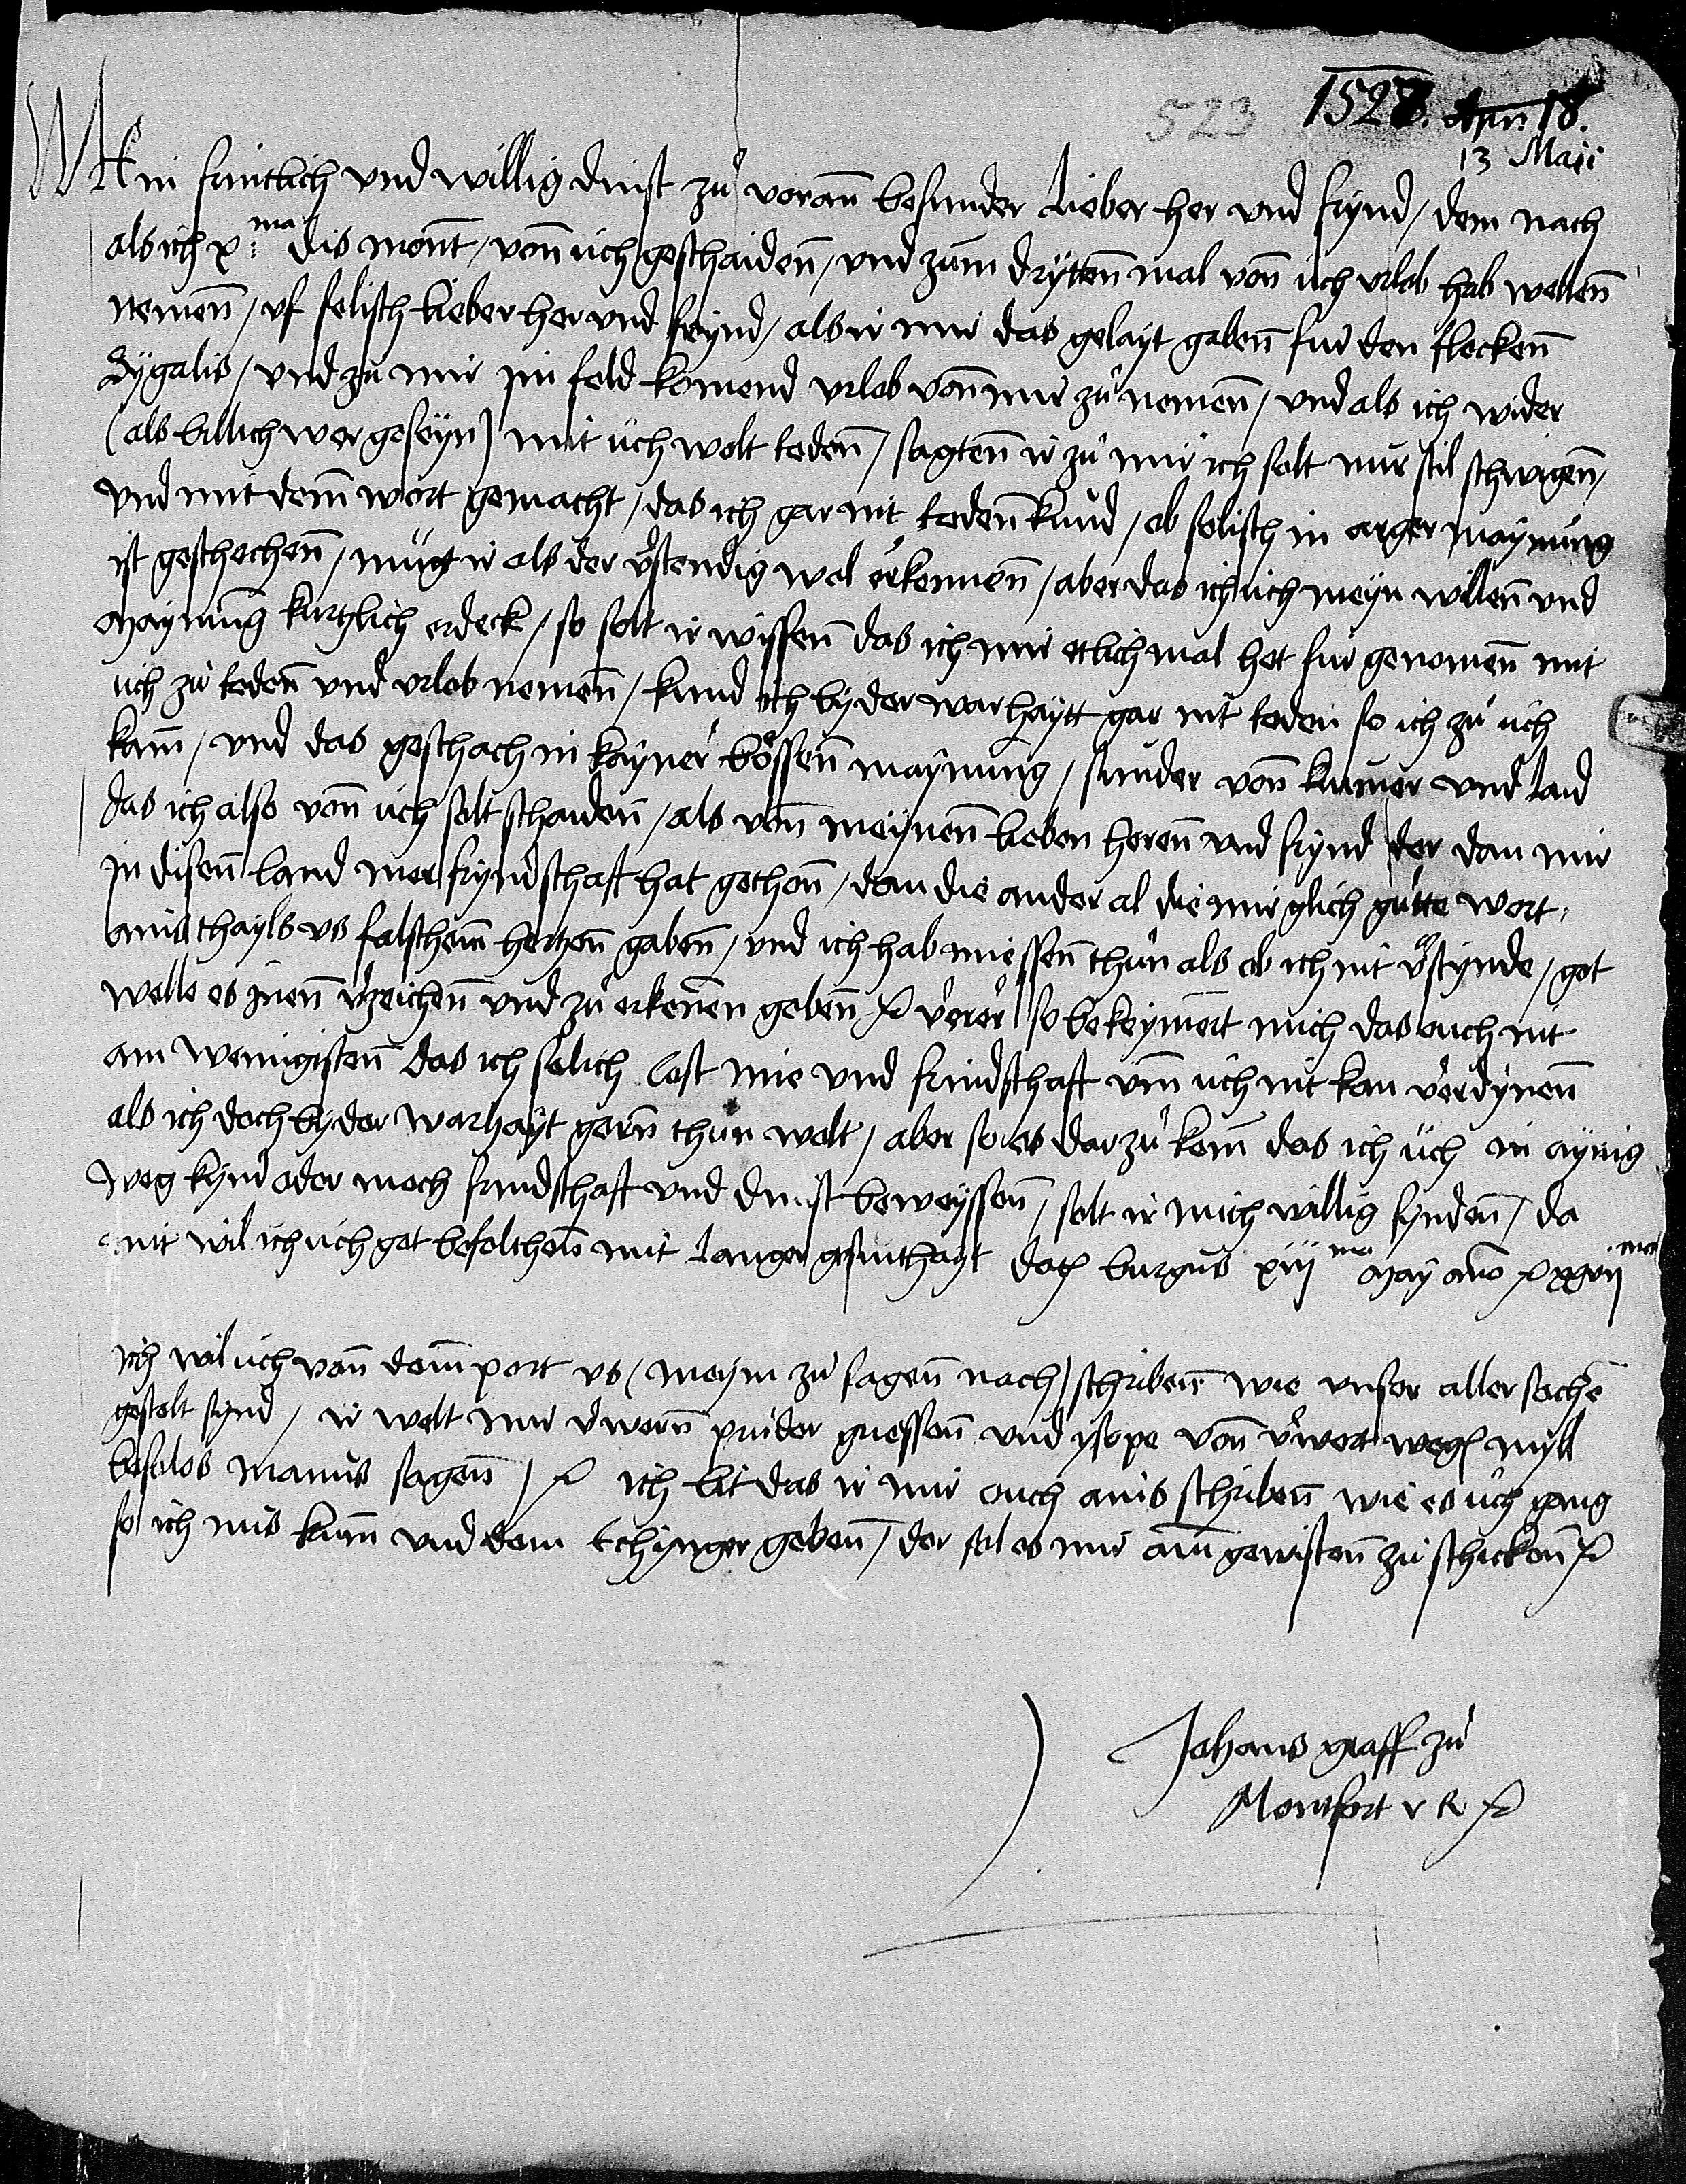 523 1527. Apri 18.
13 Maii
Mein fruntlich und willig dinst zu vorann besunder lieber her und frynd / dem nach
als ich x.ma dis mont / vonn üch geschaiden / und zum drytten mal vonn üch urlob hab wellenn
nemenn / uf selisch lieber her und frynd / als ir mir das gelayt gabenn fur den fleckenn
Zygalis / und zu mir im feld komend urlob von mir zu nemenn / und als ich wider
(als billich wer geseyn) mit üch wolt redenn / sagtenn ir zu mir ich solt nur stil schwigenn /
und mit dem wort gemacht / das ich gar nit redenn kund / ob selisch in arger maynung
ist geschechenn / mügt ir als der verstendig wol erkennenn / aber das ich üch meyn willenn und
maynung kurtzlich erdeck / so solt ir wissenn das ich mir etlich mal het fur genomenn mit
üch zu redenn und urlob nemenn / kund ich by der warhaytt gar nit reden so ich zu üch
kam / und das geschach in kayner bössenn maynung / sunder vonn kumer und laid
das ich also vonn üch solt schaidenn / als vonn meynenn lieben herenn und frynd der dan mir
in disenn land mer fryndschaft hat gethonn / dan die ander al die mir glich gutte wort
ains thayls us falschem hertzenn gabenn / und ich hab miessenn thun als ob ich nit verstynde / got
welle es inenn verzeichenn und zu erkenen gebenn / verer so bekymert mich das auch nit
am wenigistenn das ich selich lost mie und frindschaft um üch nit kan verdynenn
als ich doch by der warhayt gern thun wolt / aber so es dar zu kem das ich üch in aynig
weg kynd oder moch frundschaft und dinst beweyssenn / solt ir mich willig fyndenn / da
mit wil ich üch got befelchenn mit langer gesunthayt dat burgus xiij ma may ano xxvij ma
ich wil üch vonn dem port us / meym zu sagenn nach / schribenn wie unser aller sachen
gestelt synd / ir welt mir üwernn pruder griessenn und ysope vonn üwert wegen myll
besalos manus sagenn / ich bit das ir mir ouch ains schribenn wie es üch gang
so ich nus kum und dem Echynger gebenn / der sol es mir am gewistenn zu schickenn
Johans graff zu
Montfort v R